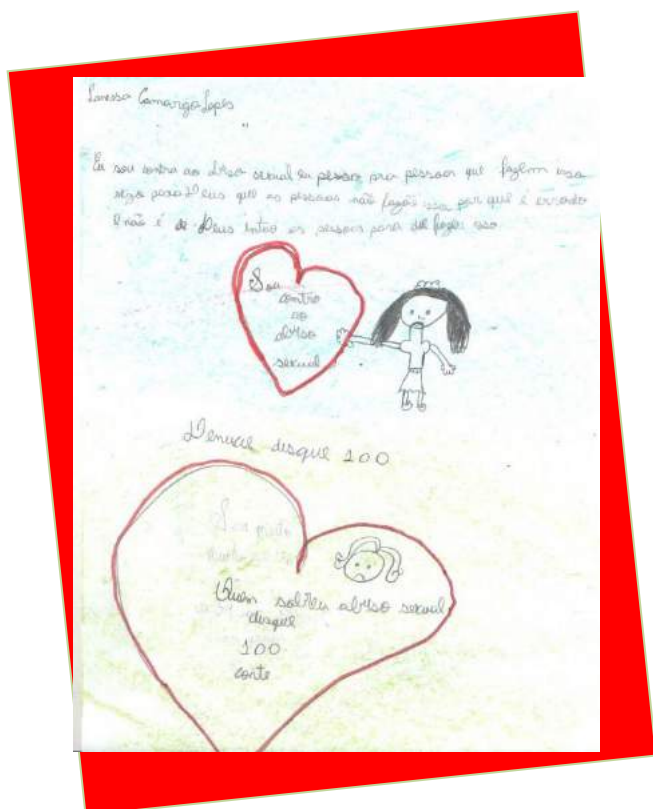 Camargo Lopes
Eu sou contra ao abuso sexual eu pesso pra pessoas que fazem isso
rezo para Deus que as pessoas não fazer isso por que é errado
e não é de Deus então as pessoas para de fazer isso
Sou
contra
ao
abuso
sexual
Denucie disque 100
Sou
Quem sofreu abuso sexual
disque
100
conte